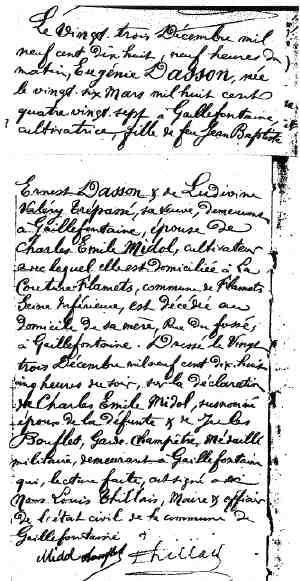 Le vingt trois Décembre mil
neuf cent dix huit, neuf heures du
matin, Eugénie Dasson, née
le vingt six Mars mil huit cent
quatre vingt sept à Gaillefontaine,
cultivatrice, fille de feu Jean Baptiste
Ernest Dasson & de Ludivine
Valéry Trépassé, sa veuve, demeurant
à Gaillefontaine, épouse de
Charles Emile Midol, cultivateur
avec lequel elle est domiciliée à La
Flamets, commune de Flamets
Seine Inférieure, est décédée au
domicile de sa mère, Rue du fossé,
à Gaillefontaine. Dressé le vingt
trois Décembre mil neuf cent dix huit
cinq heures du soir, sur la déclaration
de Charles Emile Midol, susnommé
époux de la défunte & de Jules
Bouflet, Garde Champêtre, Médaillé
militaire, demeurant à Gaillefontaine
qui, lecture faite, ont signé avec
Nous Louis Thillais, Maire & officier
de l'état civil de la commune de
Gaillefontaine
Midol Bouflet Thillais